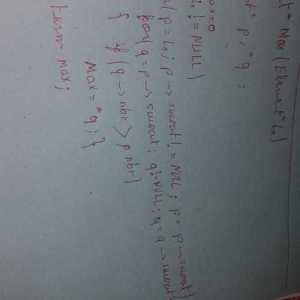 t * Max (Element * L)
* p, * q ;
x=0
L != NULL)
(p = L ; p -> suivant != NULL ; p = p -> suivant)
for(q = p -> suivant ; q != NULL ; q = q -> suivant
{ if (q -> nbr > p nbr)
Max = *q ; }
return max ;